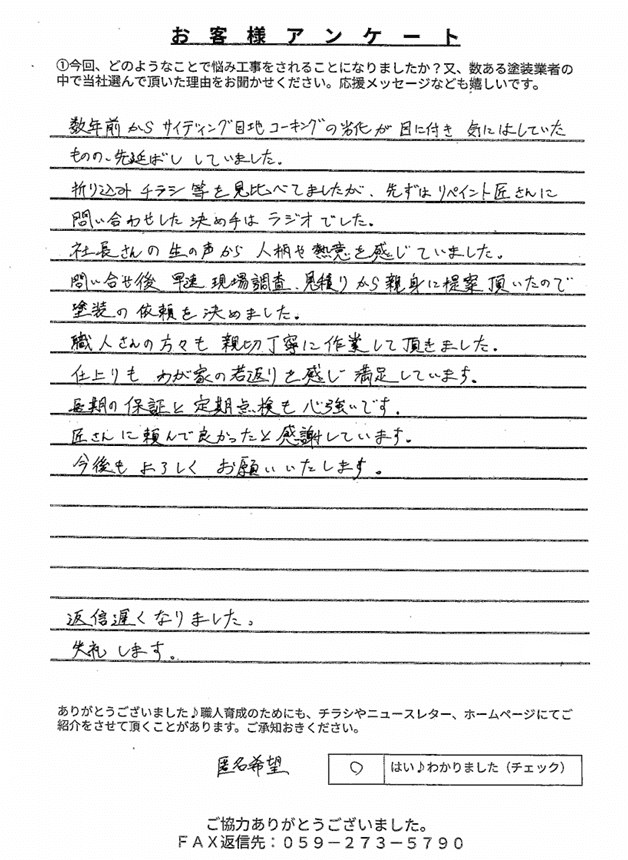 お客様アンケート
①今回、どのようなことで悩み工事をされることになりましたか？又、数ある塗装業者の
中で当社選んで頂いた理由をお聞かせください。応援メッセージなども嬉しいです。
数年前からサイディング目地コーキングの劣化が目に付き 気にはしていた
ものの、先延ばし していました。
折り込み チラシ 等を見比べてましたが、先ずはリペイント匠さんに
問い合わせした決め手は ラジオでした。
社長さんの生の声から 人柄や熱意を感じていました。
問い合せ後 早速 現場調査、見積りから親身に提案頂いたので
塗装の依頼を決めました。
職人さんの方々も 親切丁寧に作業して頂きました。
仕上りも わが家の若返りを感じ 満足しています。
長期の保証と定期点検も心強いです。
匠さんに頼んで良かったと感謝しています。
今後もよろしく お願いいたします。
返信遅くなりました。
失礼します。
ありがとうございました♪職人育成のためにも、チラシやニュースレター、ホームページにてご
紹介をさせて頂くことがあります。ご承知おきください。
匿名希望 ○ はい♪わかりました（チェック）
ご協力ありがとうございました。
ＦＡＸ返信先：０５９－２７３－５７９０